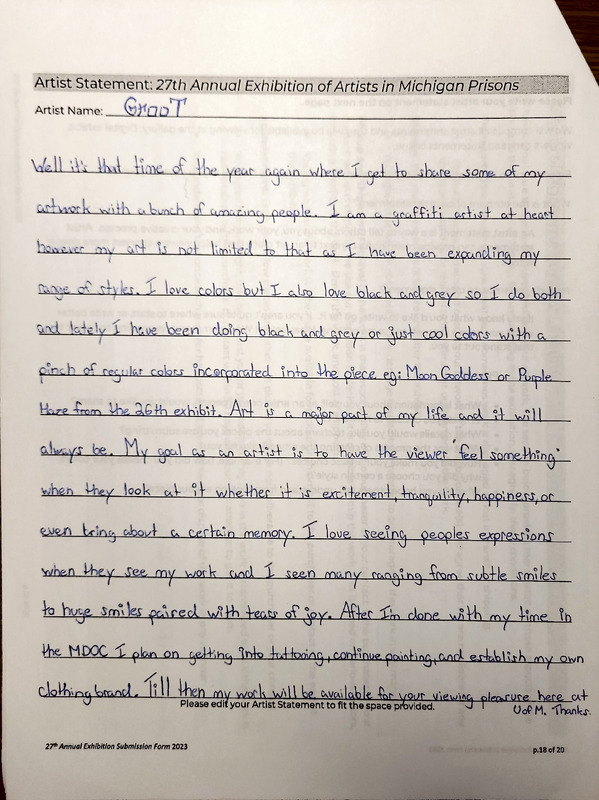 Artist Statement: 27th Annual Exhibition of Artists in Michigan Prisons
Artist Name: GrooT
Well it's that time of the year again where I get to share some of my
artwork with a bunch of amazing people. I am a graffiti artist at heart
however my art is not limited to that as I have been expanding my
range of styles. I love colors but I also love black and grey so I do both
and lately I have been doing black and grey or just cool colors with a
pinch of regular colors incorporated into the piece. eg: Moon Goddess or Purple
Haze from the 26th exhibit. Art is a major part of my life and it will
always be. My goal as an artist is to have the viewer "feel something"
when they look at it whether it is excitement, tranquility, happiness, or
even bring about a certain memory. I love seeing peoples expressions
when they see my work and I seen many ranging from subtle smiles
to huge smiles paired with tears of joy. After I'm done with my time in
the MDOC I plan on getting into tattooing, continue painting, and establish my own
clothing brand. Till then my work will be available for your viewing pleasure here at
Please edit your Artist Statement to fit the space provided.
U of M. Thanks.
27th Annual Exhibition Submission Form 2023
p.18 of 20